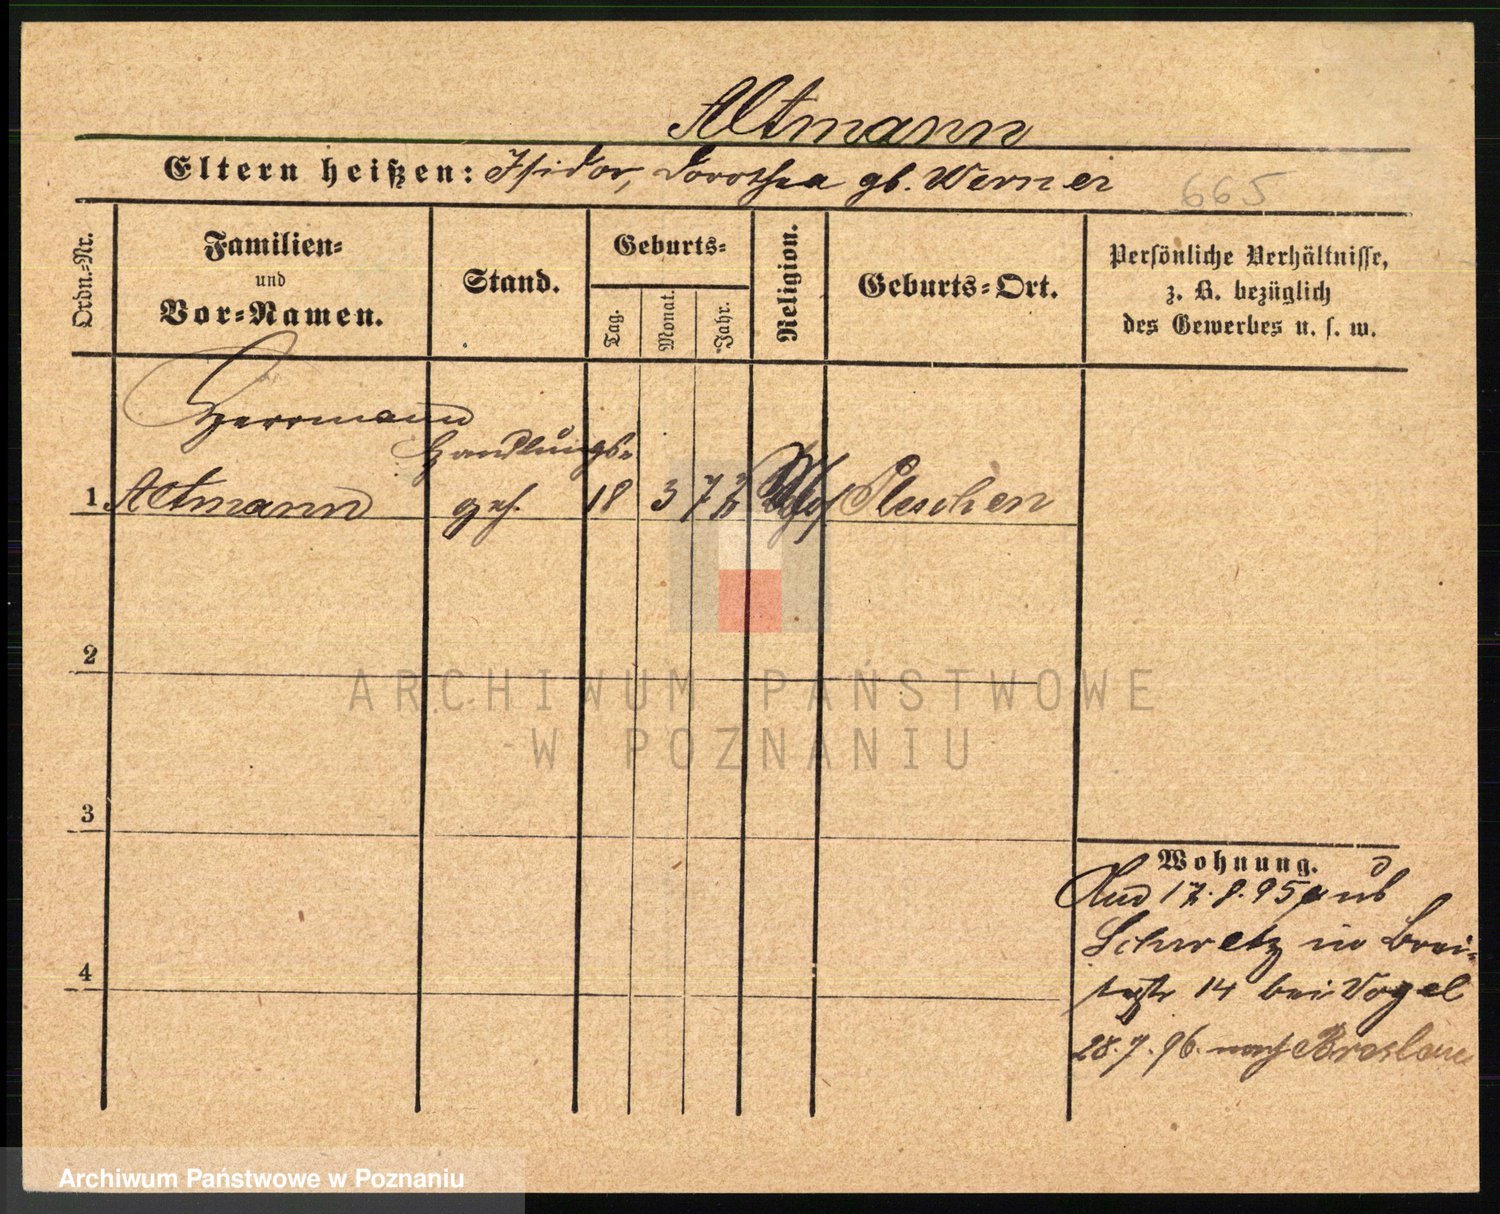 Altmann
Eltern heißen: Isidor, Dorothea gb. Werner
665
Ordn.=Nr.
Familien=
und
Vor=Namen.
Stand.
Geburts=
Tag.
Monat.
Jahr.
Religion.
Geburts=Ort.
Persönliche Verhältnisse,
z. B. bezüglich
des Gewerbes u. s. w.
Herrmann
Handlungs=
1 Altmann geh. 18 3 Pleschen
2
3
4
ARCHIWUM PAŃSTWOWE
W POZNANIU
Wohnung.
17.8.95 aus
Schwetz in Brei=
testr 14 bei Vogel
28.7.96. nach Breslau
Archiwum Państwowe w Poznaniu